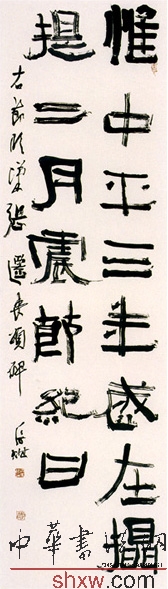 惟中平三年歲在攝
提二月震節紀日
右節臨漢張遷表頌碑
中華書
shxw.com